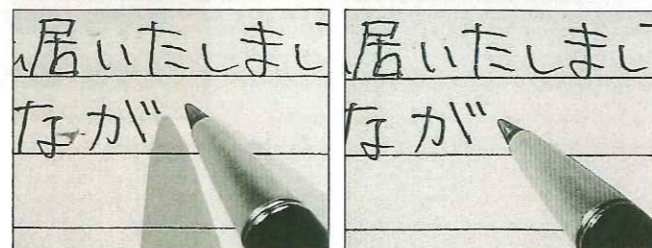 居いたしまし
なが
居いたしまし
なが